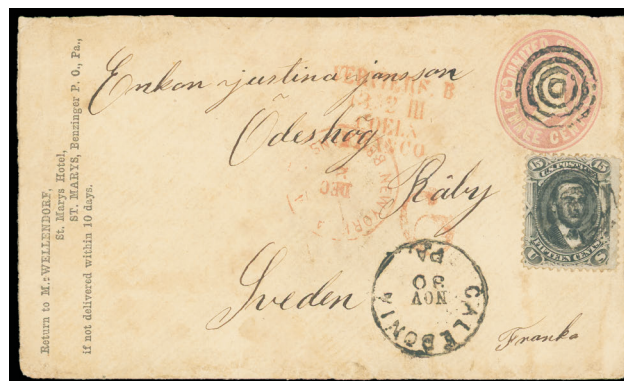 Return to M: WELLENDORF,
St. Marys Hotel,
ST. MARYS, Benzinger P. O., Pa.,
if not delivered within 10 days.
Enkan justina jansson
Ödeshog
Råby
Sveden
Franko
VERVIERS. B
COELN
FRANCO
NEW YORK
DEC
CALEDONIA
PA
NOV
30
THREE CENTS
15 15
U.S. POSTAGE
FIFTEEN CENTS
U S